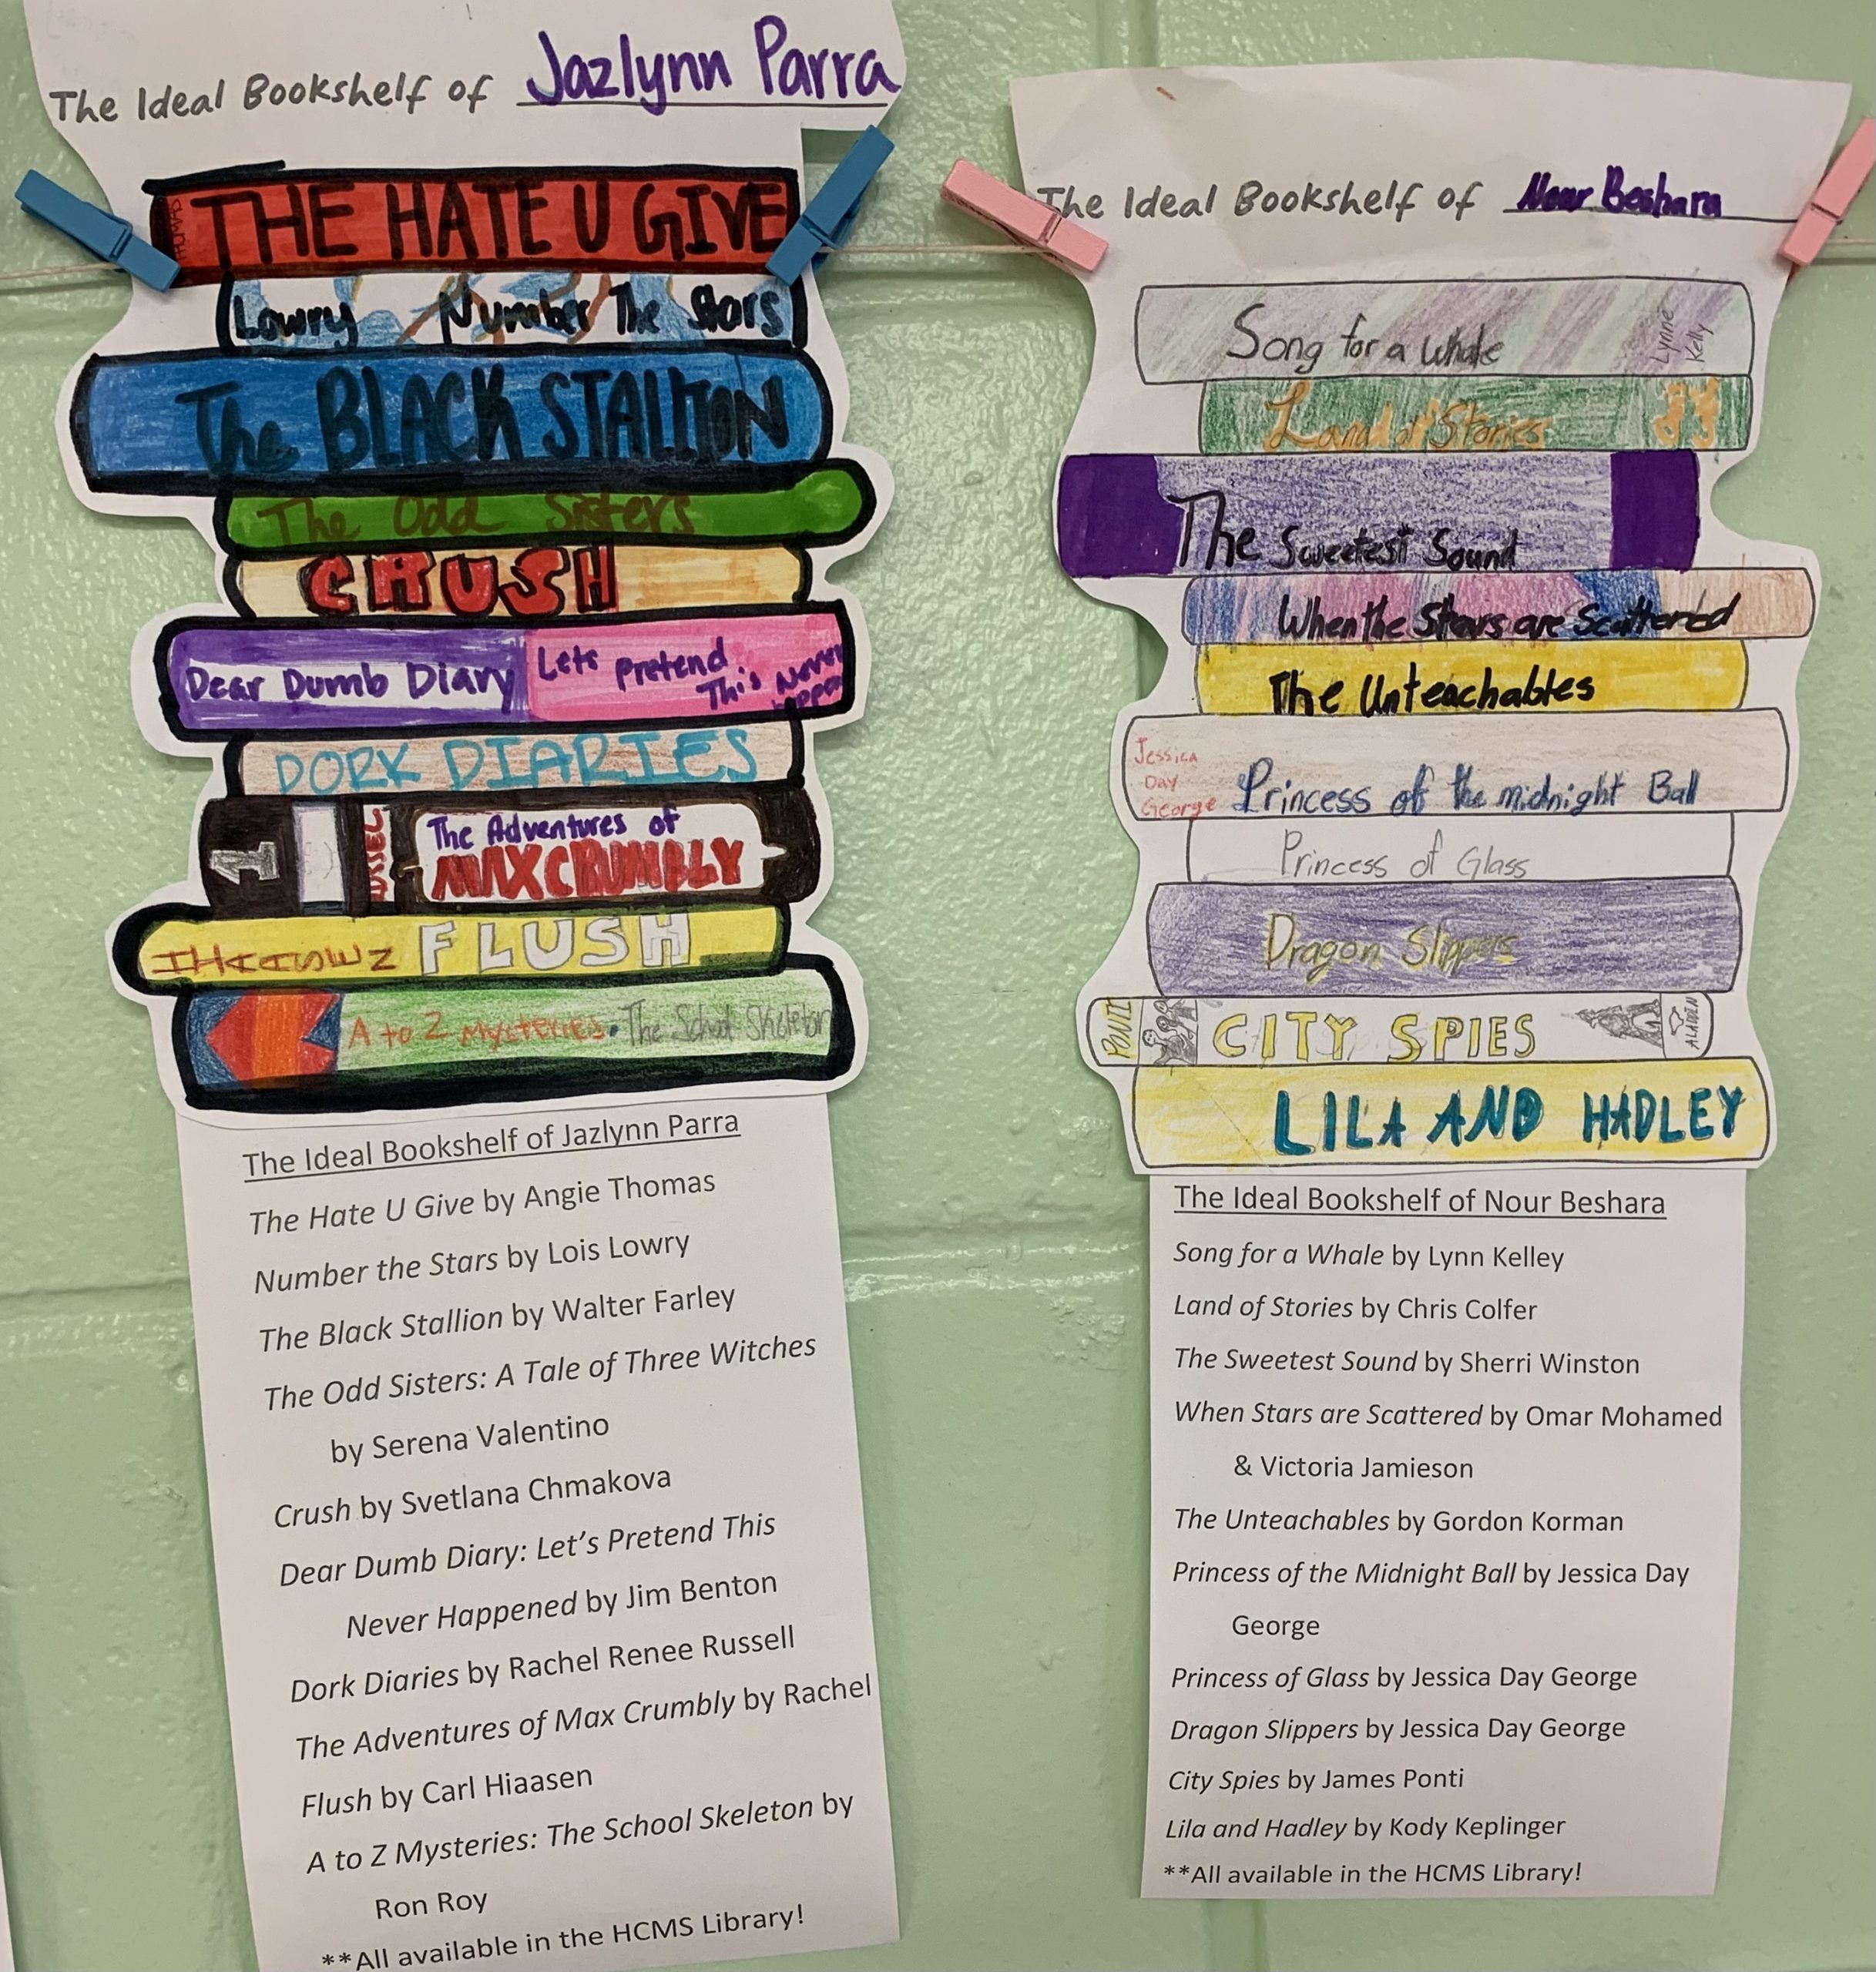 The Ideal Bookshelf of Jazlynn Parra
THE HATE U GIVE
Lowry Number The Stars
The BLACK STALLION
The Odd Sisters
CRUSH
Dear Dumb Diary Lets Pretend
This Never
DORK DIARIES
1
The Adventures of
MAX CRUMBLY
HIAASEN FLUSH
A to Z MYSTERIES. The School Skeleton
The Ideal Bookshelf of Jazlynn Parra
The Hate U Give by Angie Thomas
Number the Stars by Lois Lowry
The Black Stallion by Walter Farley
The Odd Sisters: A Tale of Three Witches
by Serena Valentino
Crush by Svetlana Chmakova
Dear Dumb Diary: Let's Pretend This
Never Happened by Jim Benton
Dork Diaries by Rachel Renee Russell
The Adventures of Max Crumbly by Rachel
Flush by Carl Hiaasen
A to Z Mysteries: The School Skeleton by
Ron Roy
**All available in the HCMS Library!
The Ideal Bookshelf of Nour Beshara
Song for a Whale Lynne Kelly
Land of Stories
The Sweetest Sound
When the Stars are Scattered
The Unteachables
Jessica
Day
George Princess of the midnight Ball
Princess of Glass
Dragon Slippers
PONTI CITY SPIES ALADDIN
LILA AND HADLEY
The Ideal Bookshelf of Nour Beshara
Song for a Whale by Lynn Kelley
Land of Stories by Chris Colfer
The Sweetest Sound by Sherri Winston
When Stars are Scattered by Omar Mohamed
& Victoria Jamieson
The Unteachables by Gordon Korman
Princess of the Midnight Ball by Jessica Day
George
Princess of Glass by Jessica Day George
Dragon Slippers by Jessica Day George
City Spies by James Ponti
Lila and Hadley by Kody Keplinger
**All available in the HCMS Library!